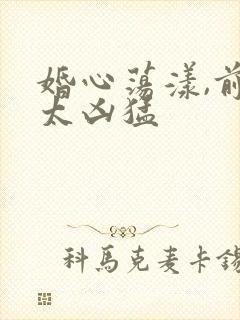 婚心荡漾,前
太凶猛
科馬克麦卡錫